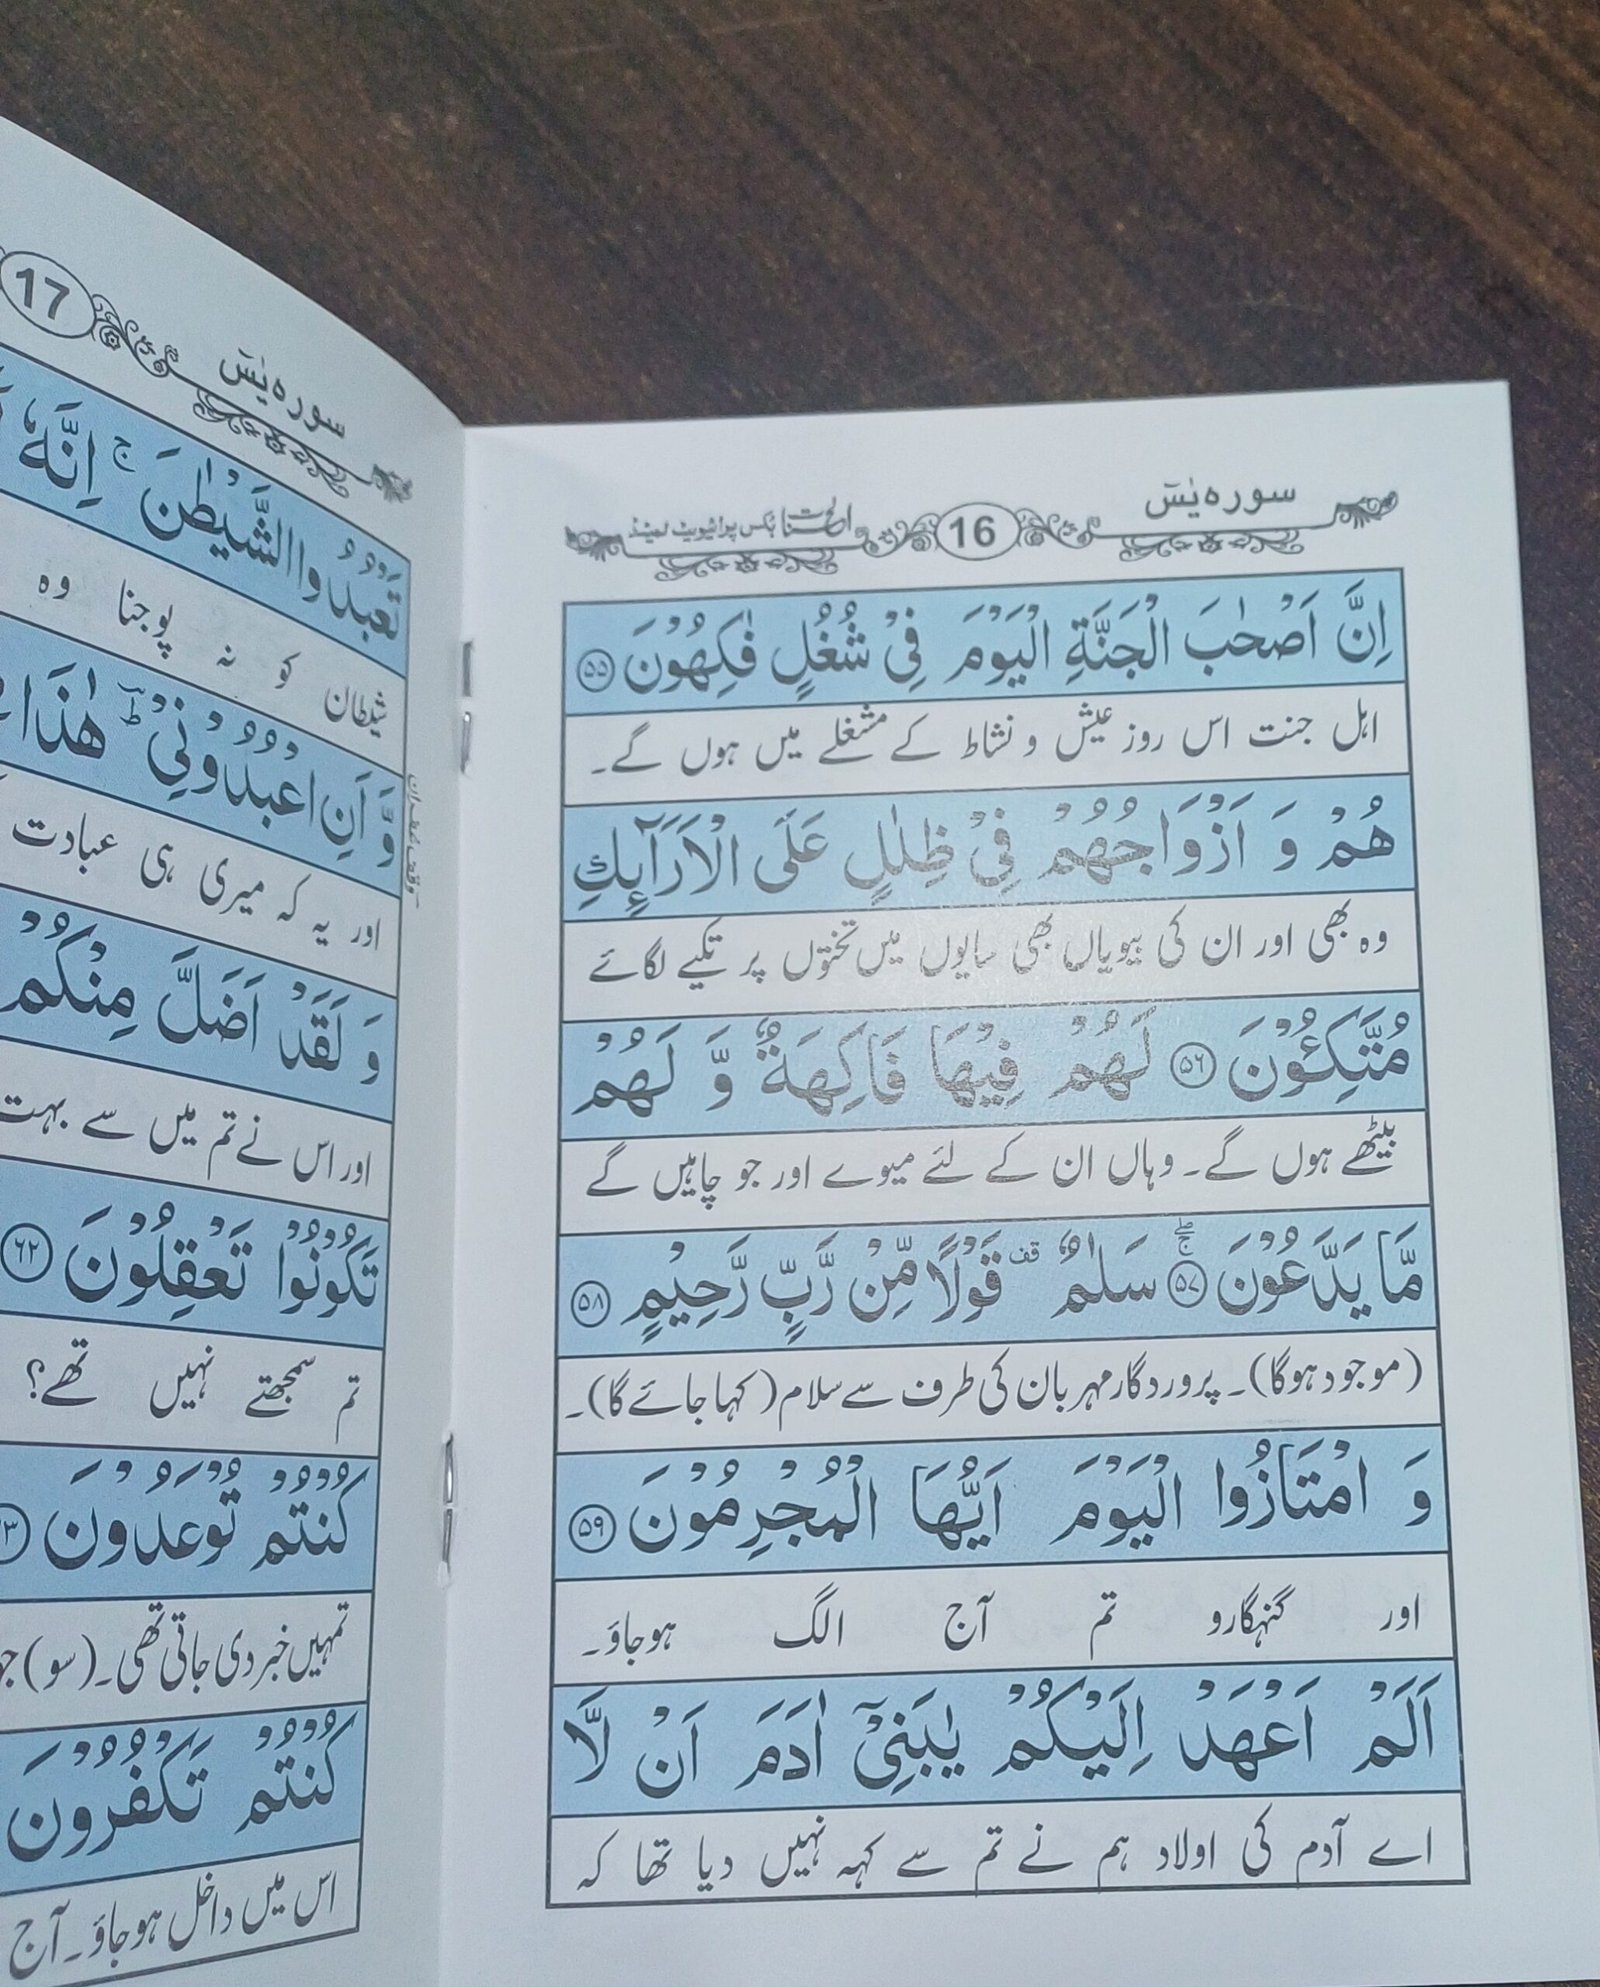 سورہ یٰسٓ
16
بکس پرائیویٹ لمیٹڈ
اِنَّ اَصْحٰبَ الْجَنَّةِ الْيَوْمَ فِيْ شُغُلٍ فٰكِهُوْنَ ۝۵۵
اہل جنت اس روز عیش و نشاط کے مشغلے میں ہوں گے۔
هُمْ وَ اَزْوَاجُهُمْ فِيْ ظِلٰلٍ عَلَى الْاَرَآئِكِ
وہ بھی اور ان کی بیویاں بھی سایوں میں تختوں پر تکیے لگائے
مُتَّكِـُٔوْنَ ۝۵۶ لَهُمْ فِيْهَا فَاكِهَةٌ وَّ لَهُمْ
بیٹھے ہوں گے۔ وہاں ان کے لئے میوے اور جو چاہیں گے
مَّا يَدَّعُوْنَ ۝۵۷ۚۖ سَلٰمٌ ۫ قَوْلًا مِّنْ رَّبٍّ رَّحِيْمٍ ۝۵۸
(موجود ہوگا)۔ پروردگار مہربان کی طرف سے سلام (کہا جائے گا)۔
وَ امْتَازُوا الْيَوْمَ اَيُّهَا الْمُجْرِمُوْنَ ۝۵۹
اور گنہگارو تم آج الگ ہوجاؤ۔
اَلَمْ اَعْهَدْ اِلَيْكُمْ يٰبَنِيْٓ اٰدَمَ اَنْ لَّا
اے آدم کی اولاد ہم نے تم سے کہہ نہیں دیا تھا کہ
سورہ یٰسٓ
17
تَعْبُدُوا الشَّيْطٰنَ ۚ اِنَّهٗ
شیطان کو نہ پوجنا وہ
وَّ اَنِ اعْبُدُوْنِيْ ؔؕ هٰذَا
اور یہ کہ میری ہی عبادت
وَ لَقَدْ اَضَلَّ مِنْكُمْ
اور اس نے تم میں سے بہت
تَكُوْنُوْا تَعْقِلُوْنَ ۝۶۲
تم سمجھتے نہیں تھے؟
كُنْتُمْ تُوْعَدُوْنَ
تمہیں خبر دی جاتی تھی۔ (سو)
كُنْتُمْ تَكْفُرُوْنَ
اس میں داخل ہوجاؤ۔ آج